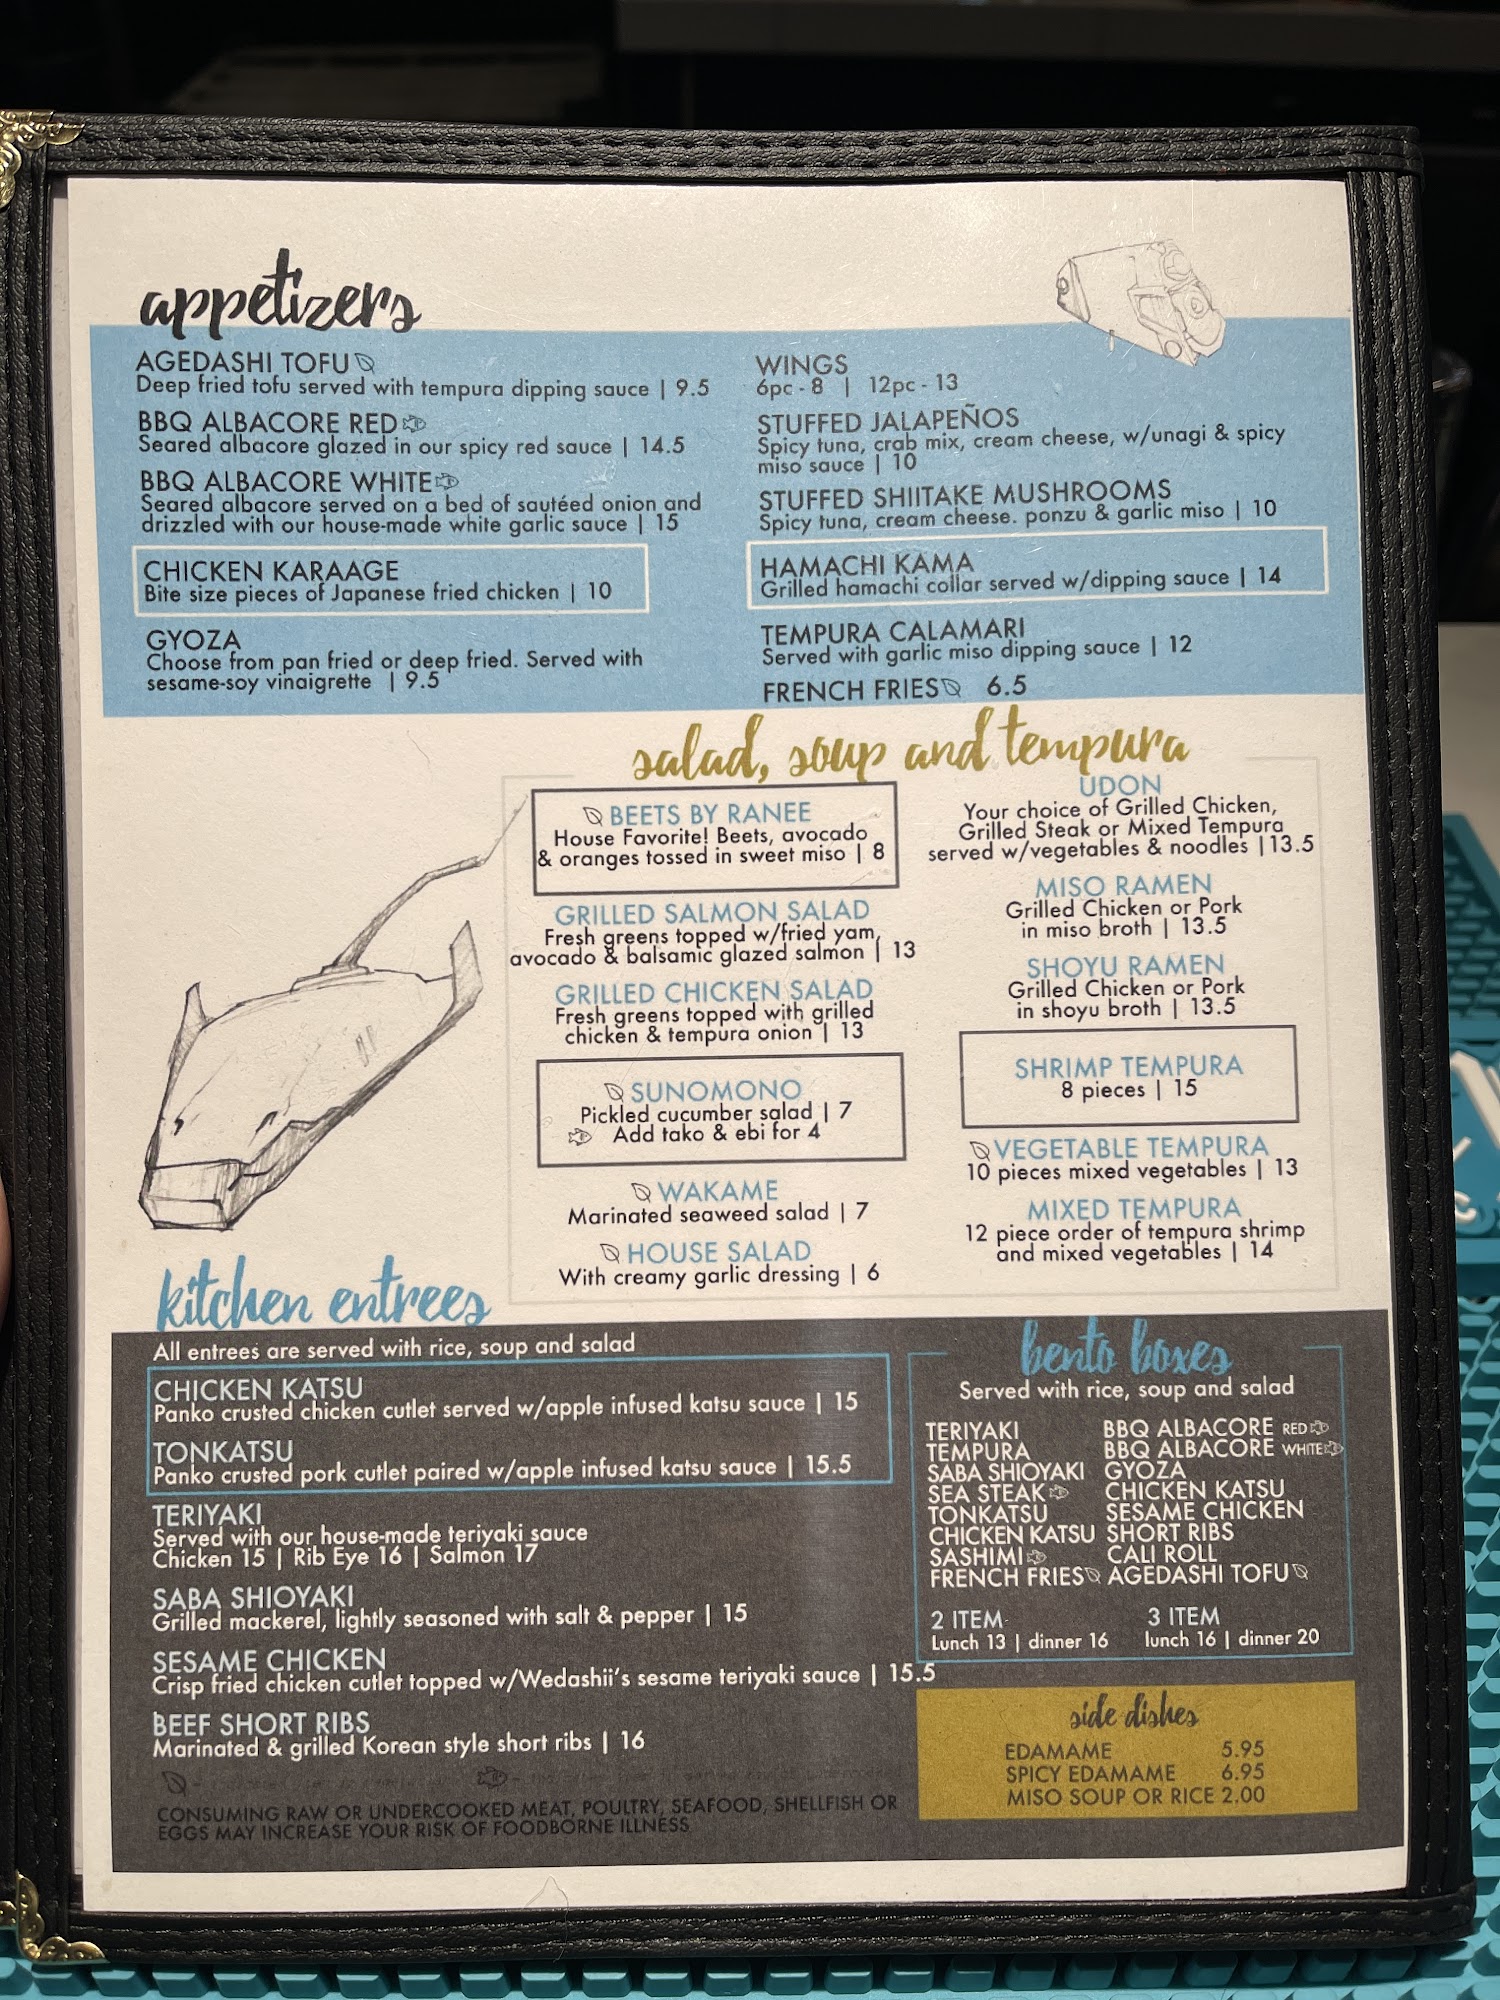 appetizers
AGEDASHI TOFU
Deep fried tofu served with tempura dipping sauce | 9.5
BBQ ALBACORE RED
Seared albacore glazed in our spicy red sauce | 14.5
BBQ ALBACORE WHITE
Seared albacore served on a bed of sautéed onion and
drizzled with our house-made white garlic sauce | 15
CHICKEN KARAAGE
Bite size pieces of Japanese fried chicken | 10
GYOZA
Choose from pan fried or deep fried. Served with
sesame-soy vinaigrette | 9.5
WINGS
6pc - 8 | 12pc - 13
STUFFED JALAPEÑOS
Spicy tuna, crab mix, cream cheese, w/unagi & spicy
miso sauce | 10
STUFFED SHIITAKE MUSHROOMS
Spicy tuna, cream cheese. ponzu & garlic miso | 10
HAMACHI KAMA
Grilled hamachi collar served w/dipping sauce | 14
TEMPURA CALAMARI
Served with garlic miso dipping sauce | 12
FRENCH FRIES 6.5
salad, soup and tempura
BEETS BY RANEE
House Favorite! Beets, avocado
& oranges tossed in sweet miso | 8
GRILLED SALMON SALAD
Fresh greens topped w/fried yam,
avocado & balsamic glazed salmon | 13
GRILLED CHICKEN SALAD
Fresh greens topped with grilled
chicken & tempura onion | 13
SUNOMONO
Pickled cucumber salad | 7
Add tako & ebi for 4
WAKAME
Marinated seaweed salad | 7
HOUSE SALAD
With creamy garlic dressing | 6
UDON
Your choice of Grilled Chicken,
Grilled Steak or Mixed Tempura
served w/vegetables & noodles | 13.5
MISO RAMEN
Grilled Chicken or Pork
in miso broth | 13.5
SHOYU RAMEN
Grilled Chicken or Pork
in shoyu broth | 13.5
SHRIMP TEMPURA
8 pieces | 15
VEGETABLE TEMPURA
10 pieces mixed vegetables | 13
MIXED TEMPURA
12 piece order of tempura shrimp
and mixed vegetables | 14
kitchen entrees
All entrees are served with rice, soup and salad
CHICKEN KATSU
Panko crusted chicken cutlet served w/apple infused katsu sauce | 15
TONKATSU
Panko crusted pork cutlet paired w/apple infused katsu sauce | 15.5
TERIYAKI
Served with our house-made teriyaki sauce
Chicken 15 | Rib Eye 16 | Salmon 17
SABA SHIOYAKI
Grilled mackerel, lightly seasoned with salt & pepper | 15
SESAME CHICKEN
Crisp fried chicken cutlet topped w/Wedashii's sesame teriyaki sauce | 15.5
BEEF SHORT RIBS
Marinated & grilled Korean style short ribs | 16
CONSUMING RAW OR UNDERCOOKED MEAT, POULTRY, SEAFOOD, SHELLFISH OR
EGGS MAY INCREASE YOUR RISK OF FOODBORNE ILLNESS
bento boxes
Served with rice, soup and salad
TERIYAKI
TEMPURA
SABA SHIOYAKI
SEA STEAK
TONKATSU
CHICKEN KATSU
SASHIMI
FRENCH FRIES
BBQ ALBACORE RED
BBQ ALBACORE WHITE
GYOZA
CHICKEN KATSU
SESAME CHICKEN
SHORT RIBS
CALI ROLL
AGEDASHI TOFU
2 ITEM
Lunch 13 | dinner 16
3 ITEM
lunch 16 | dinner 20
side dishes
EDAMAME 5.95
SPICY EDAMAME 6.95
MISO SOUP OR RICE 2.00